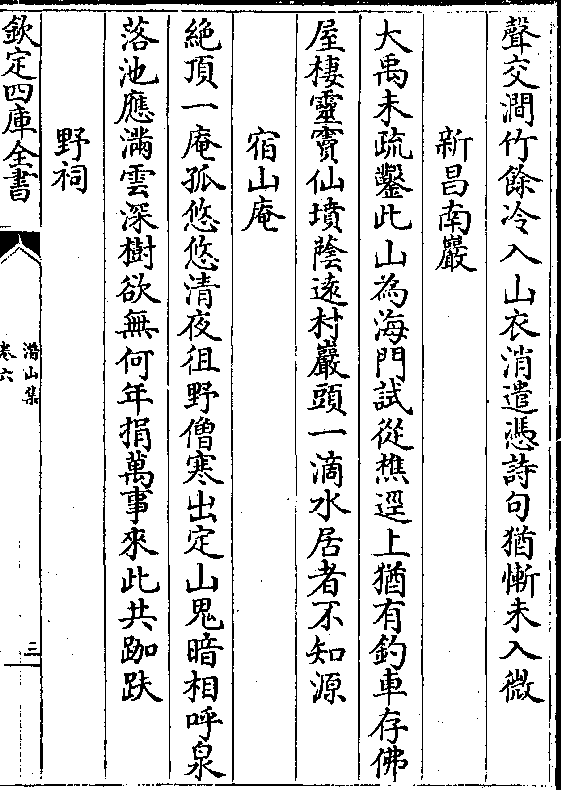 聲交澗竹餘冷入山衣消遣憑詩句猶慚未入微
新昌南巖
大禹未疏鑿此山為海門試從樵逕上猶有釣車存佛
屋棲靈竇仙墳蔭遠村巖頭一滴水居者不知源
宿山庵
絶頂一庵孤悠悠清夜徂野僧寒出定山鬼暗相呼泉
落池應滿雲深樹欲無何年捐萬事來此共跏趺
野祠
欽定四庫全書
潛山集
卷六
三